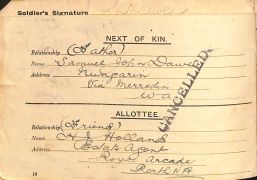 Soldier's Signature
NEXT OF KIN.
Relationship (Father)
Name Samuel John Dawe
Address Nungarin
Via Merredin
W.A.
CANCELLED.
ALLOTTEE.
Relationship (Friend)
Name H E Holland
Address Estate Agent
Royal Arcade
Perth WA
10